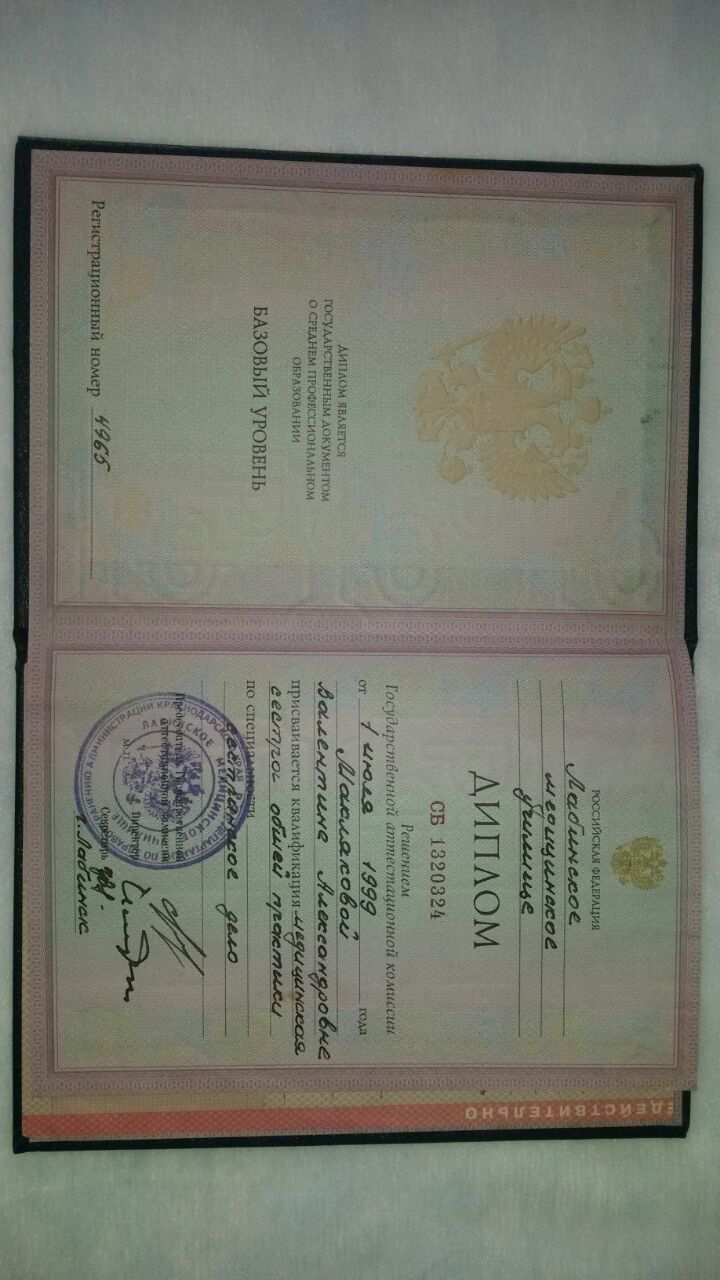 ДИПЛОМ ЯВЛЯЕТСЯ
ГОСУДАРСТВЕННЫМ ДОКУМЕНТОМ
О СРЕДНЕМ ПРОФЕССИОНАЛЬНОМ
ОБРАЗОВАНИИ
БАЗОВЫЙ УРОВЕНЬ
Регистрационный номер 4965
РОССИЙСКАЯ ФЕДЕРАЦИЯ
Лабинское
медицинское
училище
ДИПЛОМ
СБ 1320324
Решением
Государственной аттестационной комиссии
от 1 июля 1999 года
Масляковой
Валентине Александровне
присваивается квалификация медицинская
сестра общей практики
по специальности
сестринское дело
Председатель Государственной
аттестационной комиссии
Директор
Секретарь
г. Лабинск
М.П.
АДМИНИСТРАЦИИ КРАСНОДАРСКОГО КРАЯ
ЛАБИНСКОЕ МЕДИЦИНСКОЕ УЧИЛИЩЕ
ЕДЕЙСТВИТЕЛЬНО